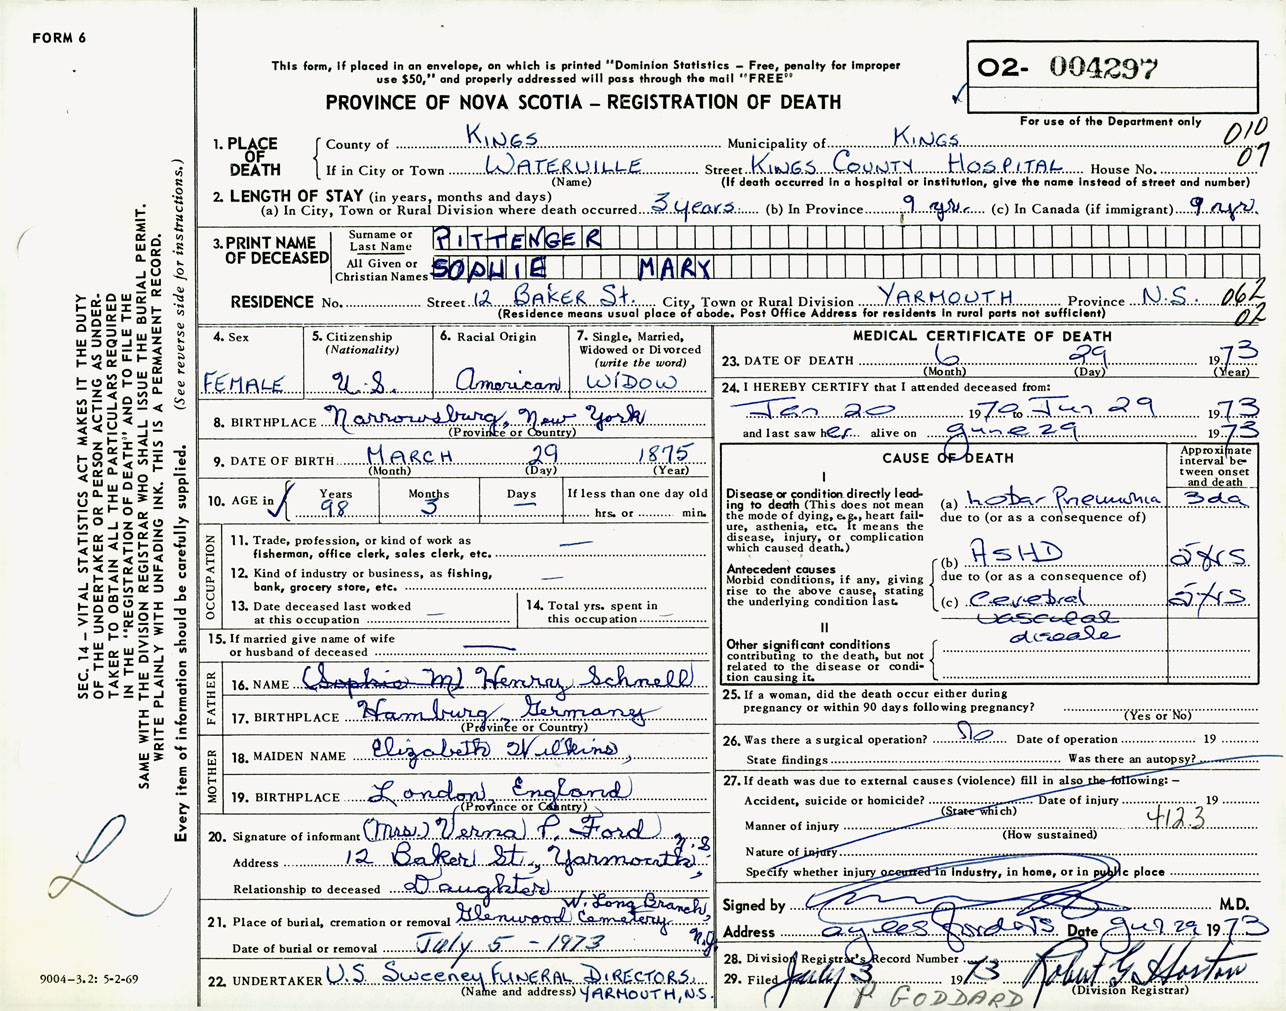 FORM 6
This form, if placed in an envelope, on which is printed "Dominion Statistics – Free, penalty for improper
use $50," and properly addressed will pass through the mail "FREE"
PROVINCE OF NOVA SCOTIA – REGISTRATION OF DEATH
02- 004297
For use of the Department only
010
07
1. PLACE OF DEATH
County of KINGS Municipality of KINGS
If in City or Town WATERVILLE Street KINGS COUNTY HOSPITAL House No.
(Name) (If death occurred in a hospital or institution, give the name instead of street and number)
2. LENGTH OF STAY (in years, months and days)
(a) In City, Town or Rural Division where death occurred 3 years (b) In Province 9 yr. (c) In Canada (if immigrant) 9 yr.
3. PRINT NAME OF DECEASED
Surname or Last Name PITTENGER
All Given or Christian Names SOPHIE MARY
RESIDENCE No. Street 12 BAKER St. City, Town or Rural Division YARMOUTH Province N.S. 062
(Residence means usual place of abode. Post Office Address for residents in rural parts not sufficient) 02
SEC. 14 – VITAL STATISTICS ACT MAKES IT THE DUTY
OF THE UNDERTAKER OR PERSON ACTING AS UNDER-
TAKER TO OBTAIN ALL THE PARTICULARS REQUIRED
IN THE "REGISTRATION OF DEATH" AND TO FILE THE
SAME WITH THE DIVISION REGISTRAR WHO SHALL ISSUE THE BURIAL PERMIT.
WRITE PLAINLY WITH UNFADING INK. THIS IS A PERMANENT RECORD.
Every item of information should be carefully supplied. (See reverse side for instructions.)
4. Sex
FEMALE
5. Citizenship
(Nationality)
U.S.
6. Racial Origin
American
7. Single, Married,
Widowed or Divorced
(write the word)
WIDOW
8. BIRTHPLACE Narrowsburg, New York
(Province or Country)
9. DATE OF BIRTH MARCH 29 1875
(Month) (Day) (Year)
10. AGE in Years Months Days If less than one day old
98 3 — hrs. or min.
OCCUPATION
11. Trade, profession, or kind of work as
fisherman, office clerk, sales clerk, etc. —
12. Kind of industry or business, as fishing,
bank, grocery store, etc. —
13. Date deceased last worked
at this occupation —
14. Total yrs. spent in
this occupation —
15. If married give name of wife
or husband of deceased —
FATHER
16. NAME (Sophie M) Henry Schnell
17. BIRTHPLACE Hamburg, Germany
(Province or Country)
MOTHER
18. MAIDEN NAME Elizabeth Wilkins,
19. BIRTHPLACE London, England
(Province or Country)
20. Signature of informant (Mrs.) Verna P. Ford
Address 12 Baker St., Yarmouth, N.S.
Relationship to deceased Daughter
21. Place of burial, cremation or removal Glenwood Cemetery W. Long Branch, N.J.
Date of burial or removal July 5 - 1973
22. UNDERTAKER U.S. Sweeney FUNERAL DIRECTORS,
(Name and address) YARMOUTH, N.S.
MEDICAL CERTIFICATE OF DEATH
23. DATE OF DEATH 6 29 1973
(Month) (Day) (Year)
24. I HEREBY CERTIFY that I attended deceased from:
Jan 20 1970 to Jun 29 1973
and last saw her alive on June 29 1973
CAUSE OF DEATH
Approximate
interval be-
tween onset
and death
I
Disease or condition directly lead-
ing to death (This does not mean
the mode of dying, e.g., heart fail-
ure, asthenia, etc. It means the
disease, injury, or complication
which caused death.)
(a) Lobar Pneumonia 3da
due to (or as a consequence of)
Antecedent causes
Morbid conditions, if any, giving
rise to the above cause, stating
the underlying condition last.
(b) ASHD 5 yrs
due to (or as a consequence of)
(c) Cerebral 5 yrs
vascular
disease
II
Other significant conditions
contributing to the death, but not
related to the disease or condi-
tion causing it.
25. If a woman, did the death occur either during
pregnancy or within 90 days following pregnancy?
(Yes or No)
26. Was there a surgical operation? No Date of operation 19
State findings Was there an autopsy?
27. If death was due to external causes (violence) fill in also the following: –
Accident, suicide or homicide? Date of injury 19
(State which)
Manner of injury 4123
(How sustained)
Nature of injury
Specify whether injury occurred in industry, in home, or in public place
Signed by M.D.
Address Aylesford NS. Date Jul 29 1973
28. Division Registrar's Record Number
29. Filed July 3 1973 Robert G. Horton
(Division Registrar)
P GODDARD
9004-3.2: 5-2-69